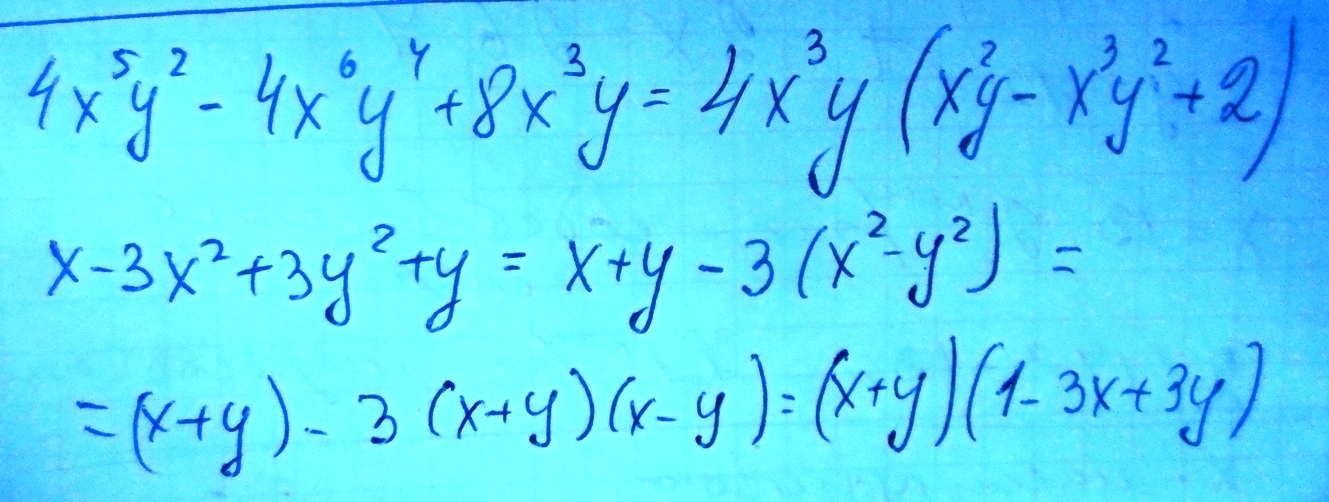 4x⁵y² - 4x⁶y⁴ + 8x³y = 4x³y (x²y - x³y² + 2)
x - 3x² + 3y² + y = x + y - 3(x² - y²) =
= (x+y) - 3(x+y)(x-y) = (x+y)(1 - 3x + 3y)